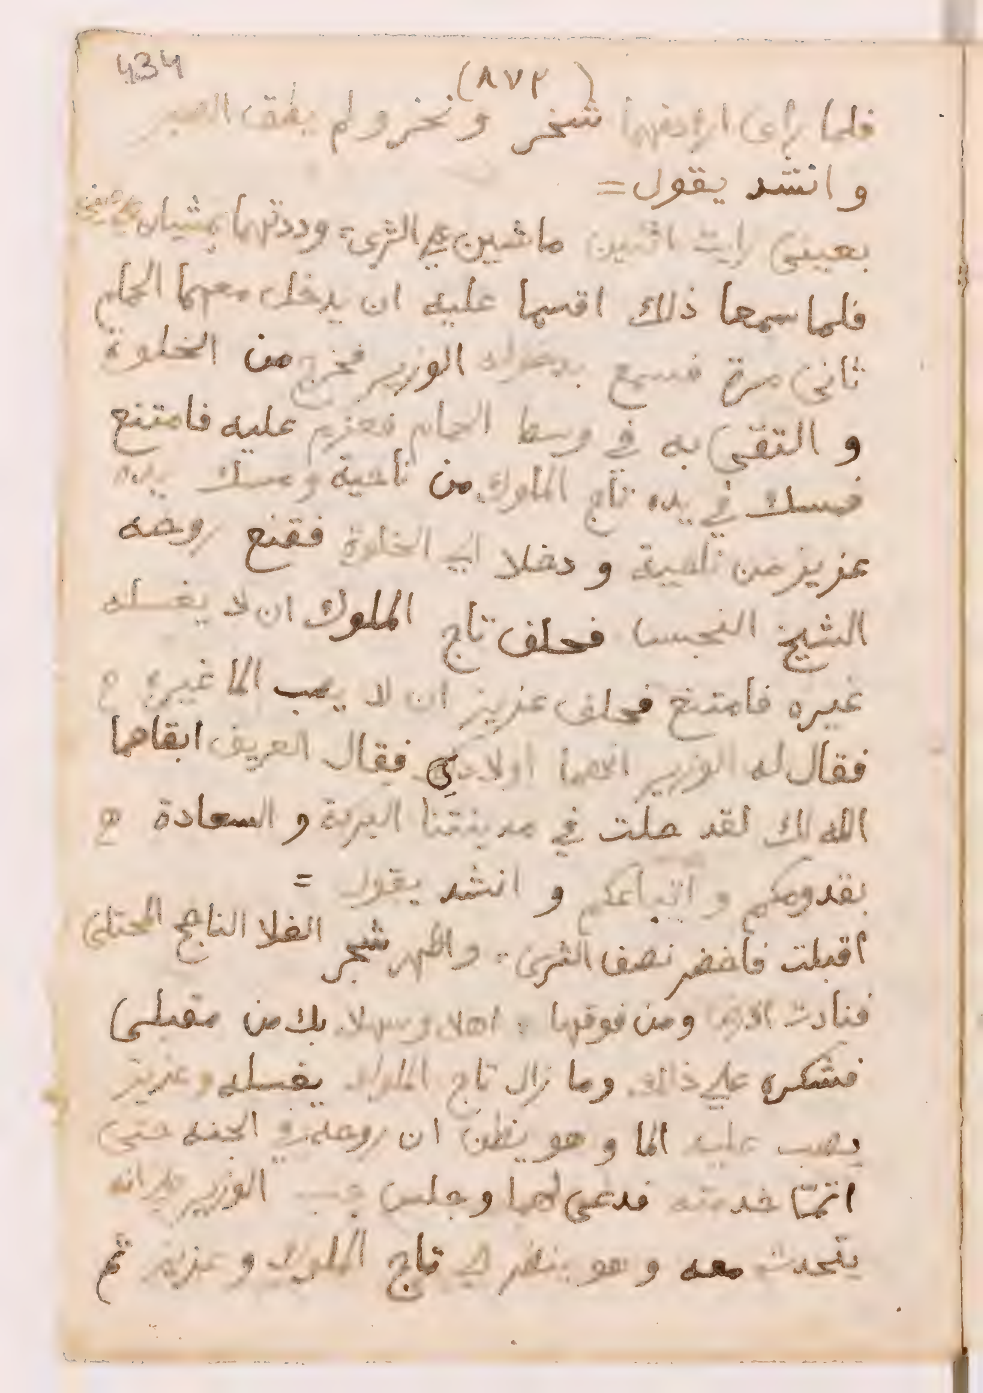 434
(٨٧٢)
فلما راى اردافهما شخر و نخر و لم يطق الصبر
و انشد يقول =
بعينى رايت اثنين ماشين علي الثرى = وددتهما يمشيان علي عينى
فلما سمعا ذلك اقسما عليه ان يدخل معهما الحمام
ثانى مرة فسمع بدخوله الوزير فخرج من الخلوة
و التقى به في وسط الحمام فعزم عليه فامتنع
فمسك في يده تاج الملوك من ناحية ومسك يده
عزيز من ناحية و دخلا الي الخلوة فقنع روحه
الشيخ النجس فحلف تاج الملوك ان لا يغسله
غيره فامتنع فحلف عزيز ان لا يصب الما غيره ه
فقال له الوزير انهما اولادكي فقال العريف ابقاهما
الله لك لقد حلت في مدينتنا البركة و السعادة ه
بقدومكم و اتباعكم و انشد يقول =
اقبلت فاخضر نصف الثرى = و اظهر شجر الفلا الناجح المحتلى
فنادت الارض ومن فوقها = اهلا و سهلا بك من مقبلى
فشكره علي ذلك وما زال تاج الملوك يغسله و عزيز
يصب عليه الما و هو يظن ان روحه في الجنه حتى
اتمّا خدمته فدعى لهما و جلس جنب الوزير علي انه
يتحدث معه و هو ينظر الي تاج الملوك و عزيز ثم